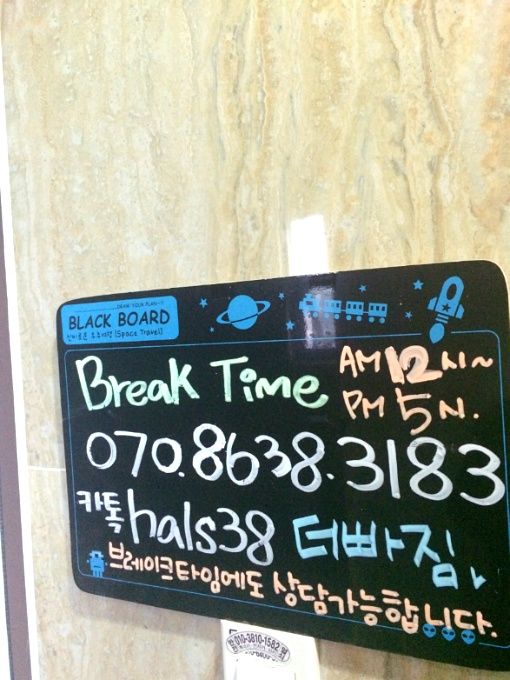 DRAW YOUR PLAN
BLACK BOARD
신비로운 우주여행 (Space Travel)
Break Time AM 12시~
PM 5시.
070.8638.3183
카톡 hals38 더빠짐
브레이크타임에도 상담가능합니다.
010-3810-1582